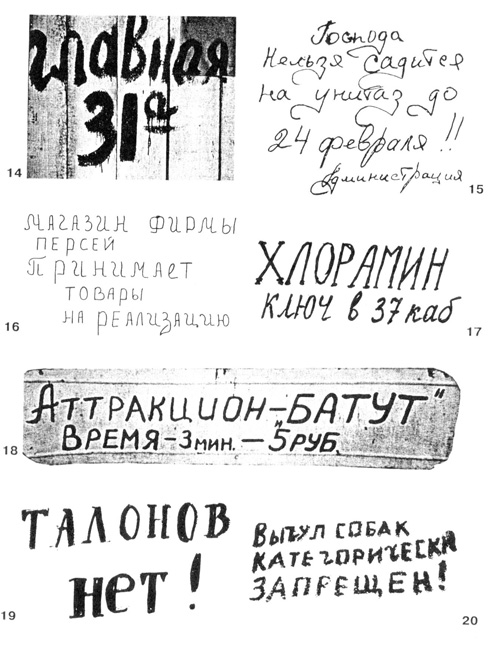 главная
31а
14
Господа
Нельзя садится
на унитаз до
24 февраля!!
Администрация
15
МАГАЗИН ФИРМЫ
ПЕРСЕЙ
ПРИНИМАЕТ
ТОВАРЫ
НА РЕАЛИЗАЦИЮ
16
ХЛОРАМИН
КЛЮЧ В 37 каб
17
АТТРАКЦИОН-„БАТУТ"
ВРЕМЯ-3 МИН. — 5 РУБ.
18
ТАЛОНОВ
НЕТ!
19
ВЫГУЛ СОБАК
КАТЕГОРИЧЕСКИ
ЗАПРЕЩЕН!
20